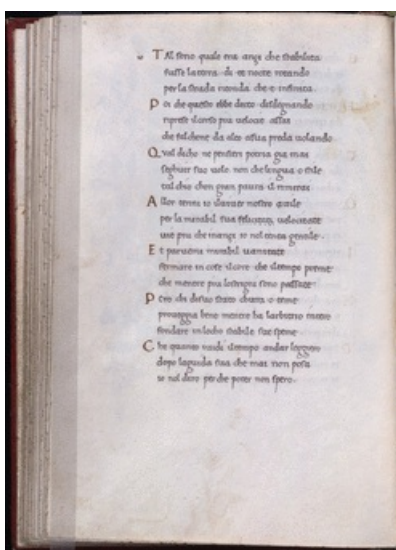 Tal sono quale era anzi che stabilita
fusse la terra. di et nocte rotando
per la strada ritonda che e infinita
Poi che questo ebbe decto disdegnando
riprese il corso piu veloce assai
che falchone da alto a sua preda volando
Qual dicho ne pensieri potria gia mai
seghuir suo volo. non che lengua o stile
tal chio chon gran paura il remirai
Allor tenni io il viver nostro a vile
per la mirabil sua velocitate
via piu che inanzi io nol tenea gentile.
Et parvemi mirabil vanitate
fermare in cose il core che il tempo preme
che mentre piu lostringi sono passate
Pero chi di suo stato chura o teme
proveggia bene mentre ha larbitrio intero
fondare in locho stabile sue speme
Che quanto vidi il tempo andar leggero
dopo la guida sua che mai non posa
io nol diro perche poter non spero.